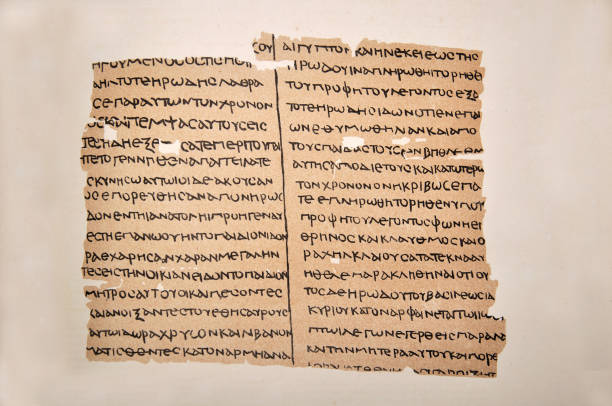 ϹΟΥ
ΗΓΟΥΜΕΝΟϹΟϹΤΙϹΠΟΙΜ
ΑΗΛΤΟΤΕΗΡΩΔΗϹΛΑΘΡΑ
ϹΕΠΑΡΑΥΤΩΝΤΟΝΧΡΟΝΟΝ
ΟϹΚΑΙΠΕΜΨΑϹΑΥΤΟΥϹΕΙϹ
ΤΕϹΗΔΗΕΞΕ ϹΑΤΕΠΕΡΙΤΟΥΠΑΙ
ΗΠΕΤΟΓΕΝΝΓΘΕΝΑΠΑΓΓΕΙΛΑΤΕ
ϹΚΥΝΗϹΩΑΥΤΩΙΟΙΔΕΑΚΟΥϹΑΝ
ΥϹΕΠΟΡΕΥΘΗϹΑΝΑΠΩΝΗΡΩϹ
ΔΟΝΕΝΤΗΙΑΝΑΤΟΛΗΙΠΡΟΗΓΕΝΑΥ
ΕϹΤΗΕΠΑΝΩΟΥΗΝΤΟΠΑΙΔΙΟΝΙΔΟΝ
ΡΑΘΧΑΡΗϹΑΝΧΑΡΑΝΜΕΓΑΛΗΝ
ΤΕϹΕΙϹΤΗΝΟΙΚΙΑΝΕΙΔΟΝΤΟΠΑΙΔΙΟΝ
ΜΗΤΡΟϹΑΥΤΟΥΟΙΚΑΙΠΕϹΟΝΤΕϹ
ΚΑΙΑΝΟΙΞΑΝΤΕϹΤΟΥϹΘΗϹΑΥΡΟΥϹ
ΑΥΤΩΙΔΩΡΑΧΡΥϹΟΝΚΑΙΛΙΒΑΝΟΝ
ΜΑΤΙϹΘΕΝΤΕϹΚΑΤΟΝΑΡΜΗΑΝΑ
ΑΙΓΥΠΤΟΝΚΑΙΗΝΕΚΕΙΕΩϹΤΗϹ
ΗΡΩΔΟΥΙΝΑΠΛΗΡΩΘΗΤΟΡΗΘΕ
ΤΟΥΠΡΟΦΗΤΟΥΛΕΓΟΝΤΟϹΕΞ
ΤΟΤΕΗΡΩΔΗϹΙΔΩΝΟΤΙΕΝΕΠΑΙ
ΩΝΕΘΥΜΩΘΗΛΙΑΝΚΑΙΑΠΟ
ΤΟΥϹΠΑΙΔΑϹΤΟΥϹΕΝΒΗΘΛΕΕΜ
ΑΥΤΗϹΑΠΟΔΙΕΤΟΥϹΚΑΙΚΑΤΩΤΕΡ
ΤΟΝΧΡΟΝΟΝΟΝΗΚΡΙΒΩϹΕΠΑ
ΤΕΕΠΛΗΡΩΘΗΤΟΡΗΘΕΝΥΠΟ
ΠΡΟΦΗΤΟΥΛΕΓΟΝΤΟϹΦΩΝΗΕΝ
ΘΡΗΝΟϹΚΑΙΚΛΑΥΘΜΟϹΚΑΙΟ
ΡΑΧΗΛΚΛΑΙΟΥϹΑΤΑΤΕΚΝΑΑ
ΗΘΕΛΕΠΑΡΑΚΛΗΘΗΝΑΙΟΤΙΟΥ
ΤΟϹΔΕΗΡΩΔΟΥΤΟΥΒΑϹΙΛΕΩϹΙΔ
ΚΥΡΙΟΥΚΑΤΟΝΑΡΦΑΙΝΕΤΑΙΤΩΙΙΩ
ΠΤΩΙΛΕΓΩΝΕΓΕΡΘΕΙϹΠΑΡΑΛΑ
ΚΑΙΤΗΝΜΗΤΕΡΑΑΥΤΟΥΚΑΙΠΟΡΕ